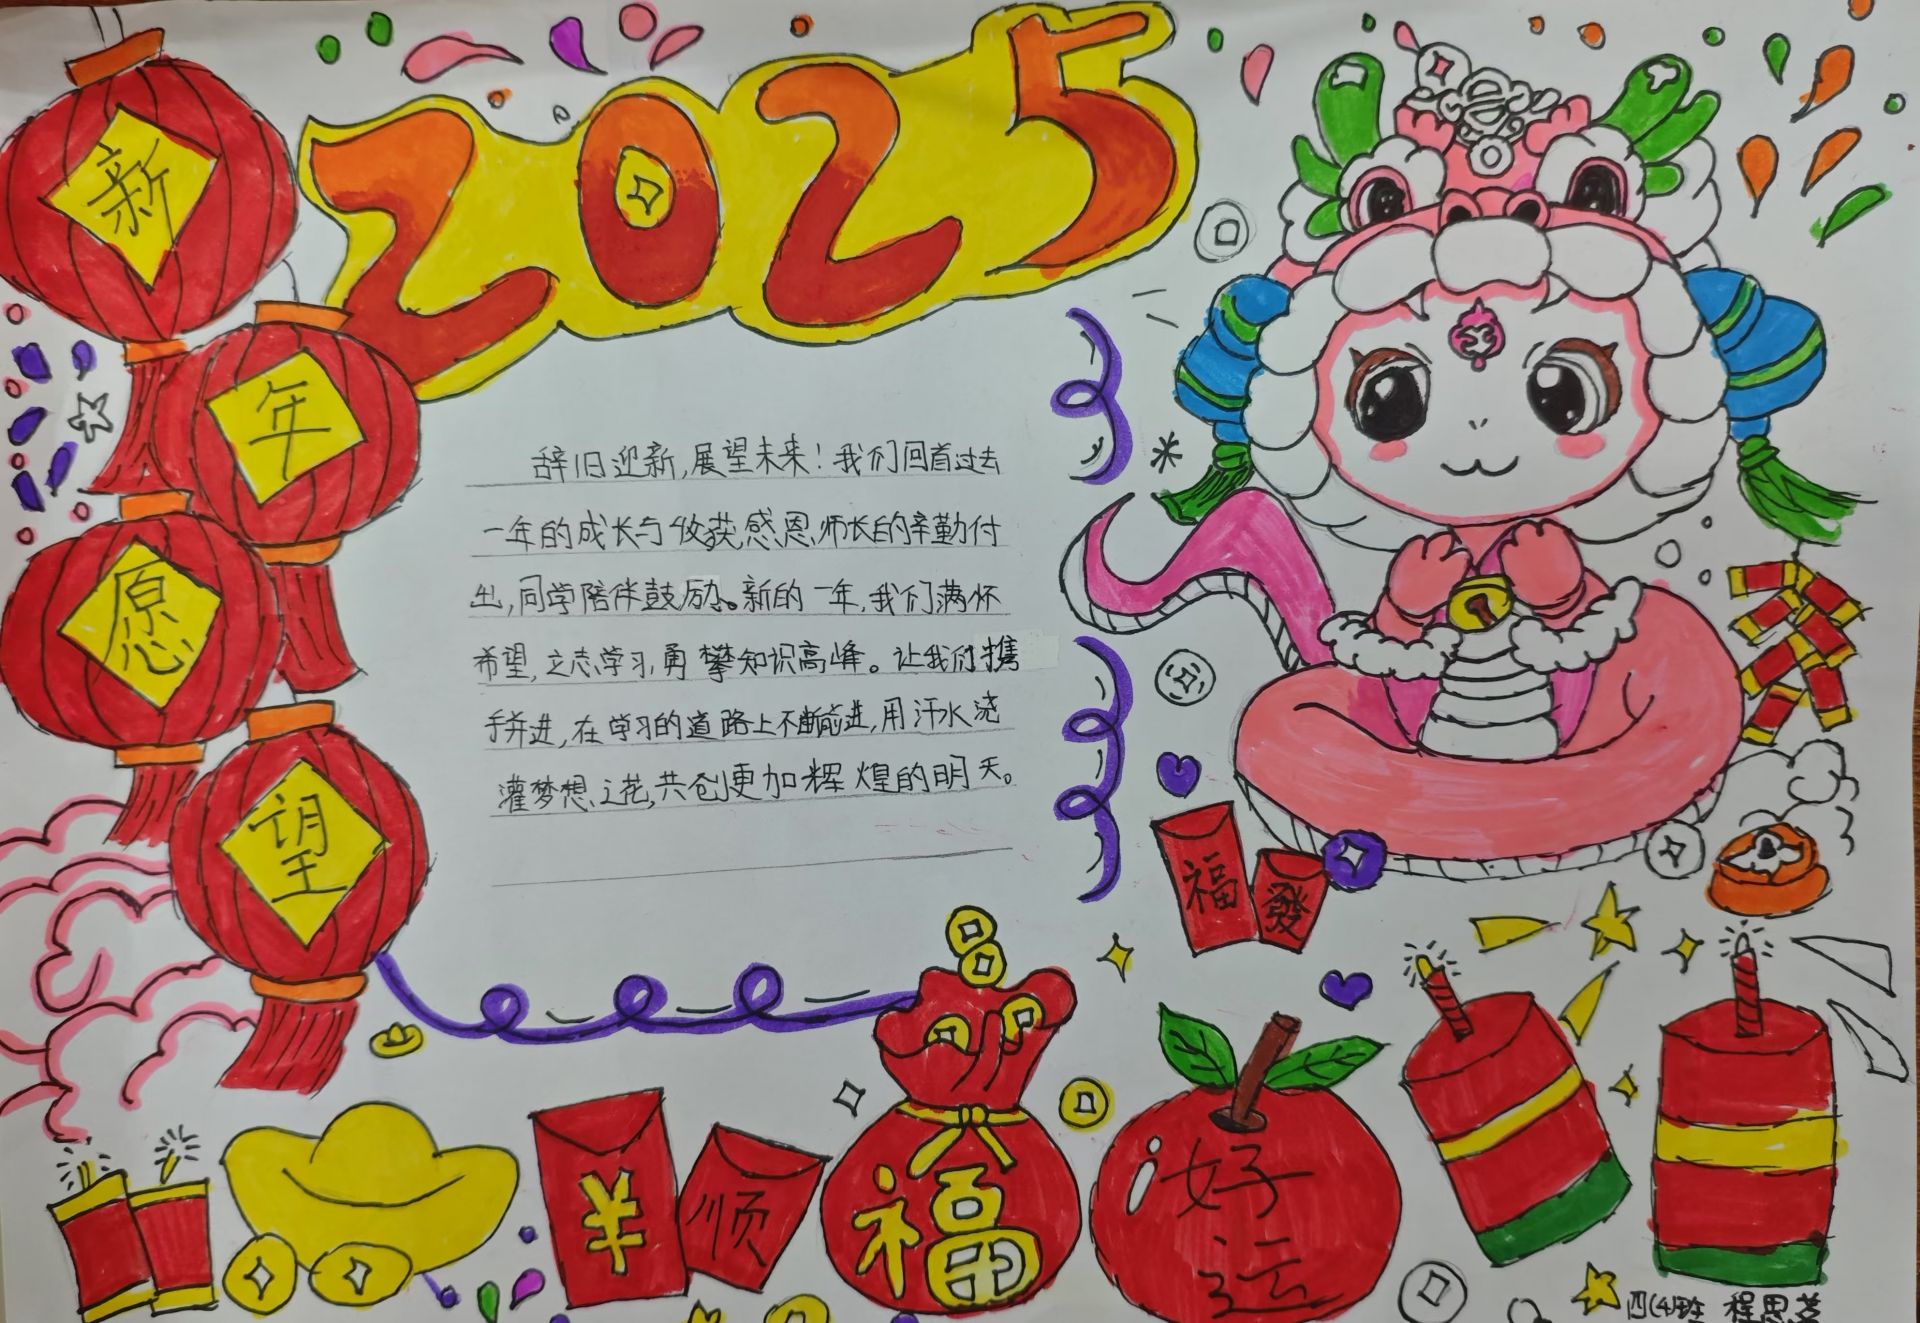 2025
新
年
愿
望
辞旧迎新,展望未来!我们回首过去
一年的成长与收获,感恩师长的辛勤付
出,同学陪伴鼓励。新的一年,我们满怀
希望,立志学习,勇攀知识高峰。让我们携
手并进,在学习的道路上不断前进,用汗水浇
灌梦想之花,共创更加辉煌的明天。
福
發
¥
顺
福
好
运
四(4)班 程思